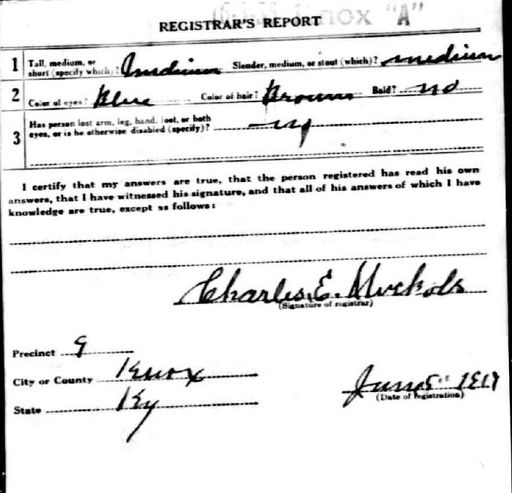 Knox "A"
REGISTRAR'S REPORT
1 Tall, medium, or short (specify which)? medium Slender, medium, or stout (which)? medium
2 Color of eyes? Blue Color of hair? Brown Bald? no
3 Has person lost arm, leg, hand, foot, or both
eyes, or is he otherwise disabled (specify)?
I certify that my answers are true, that the person registered has read his own
answers, that I have witnessed his signature, and that all of his answers of which I have
knowledge are true, except as follows:
Charles E. Nuckols
(Signature of registrar)
Precinct 9
City or County Knox
State Ky
June 5" 1917
(Date of registration)